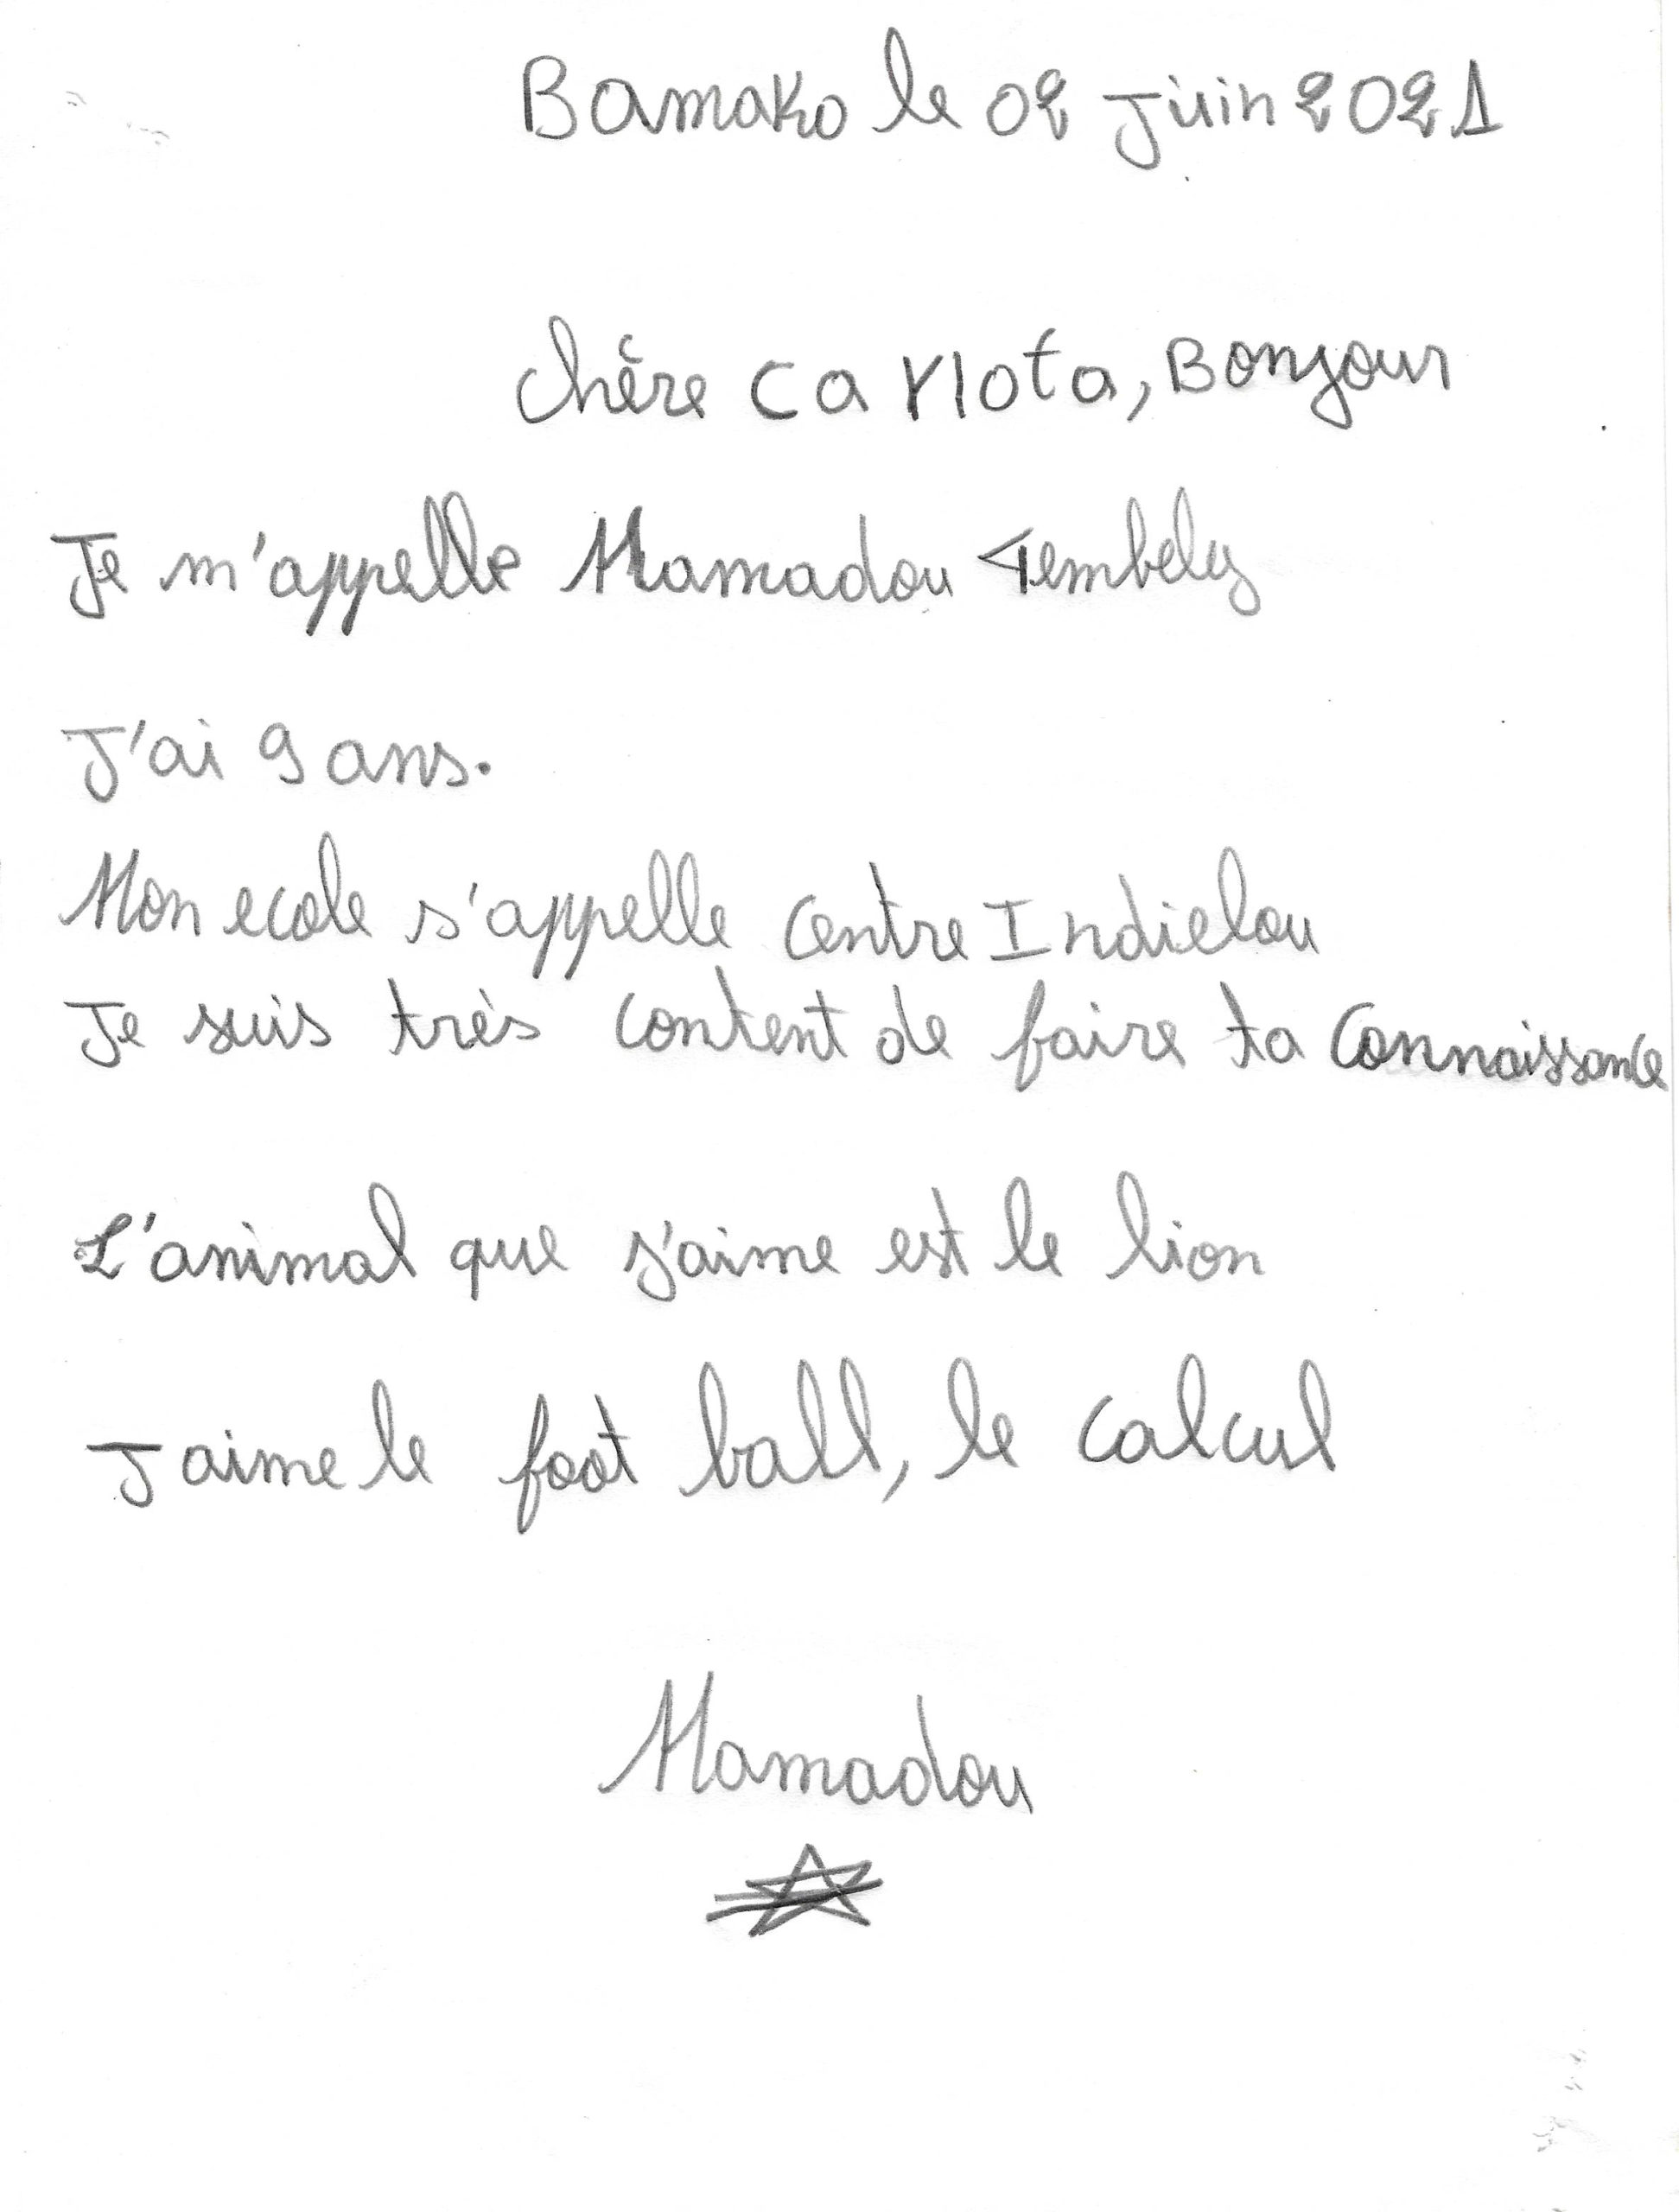 Bamako le 02 Juin 2021
Chère Carlota, Bonjour
Je m'appelle Mamadou Tembely
J'ai 9 ans.
Mon ecole s'appelle Centre Indielou
Je suis très content de faire ta Connaissance
L'animal que j'aime est le lion
J aime le foot ball, le calcul
Mamadou